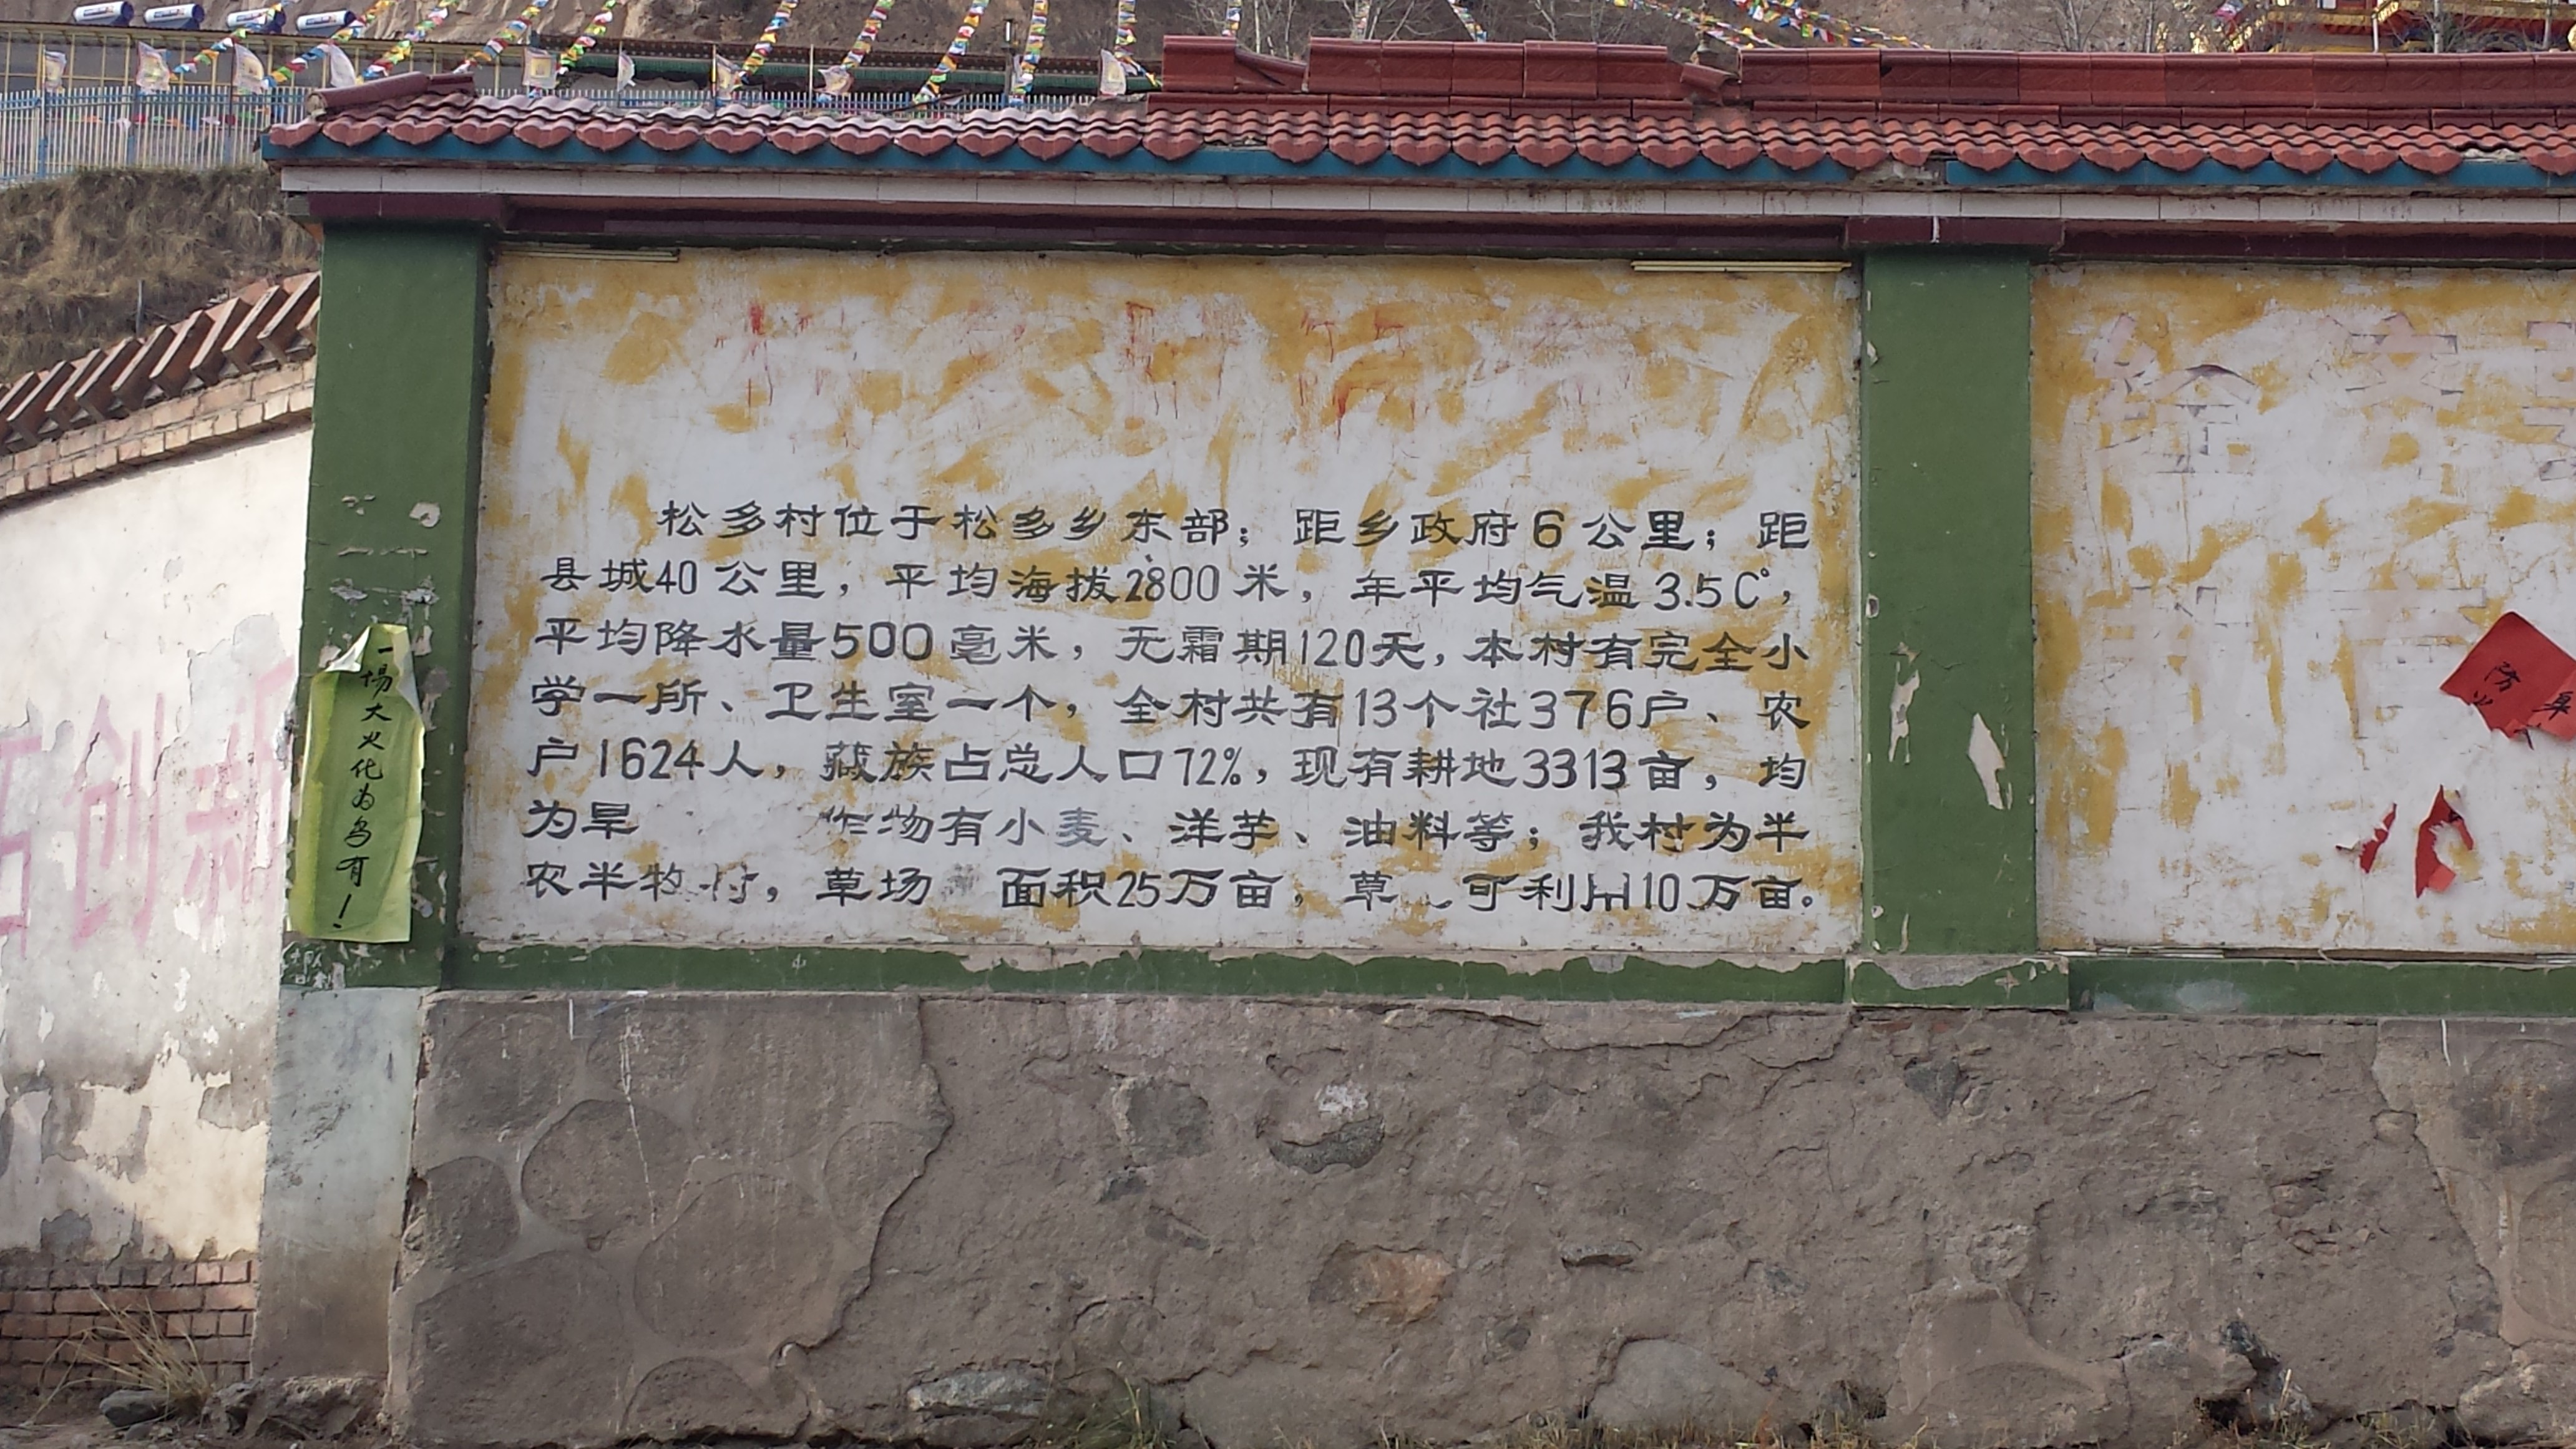 松多村位于松多乡东部；距乡政府6公里；距
县城40公里，平均海拔2800米，年平均气温3.5C°，
平均降水量500毫米，无霜期120天，本村有完全小
学一所、卫生室一个，全村共有13个社376户、农
户1624人，藏族占总人口72%，现有耕地3313亩，均
为旱 作物有小麦、洋芋、油料等；我村为半
农半牧村，草场 面积25万亩，草 可利用10万亩。
一场大火化为乌有！
创新
防